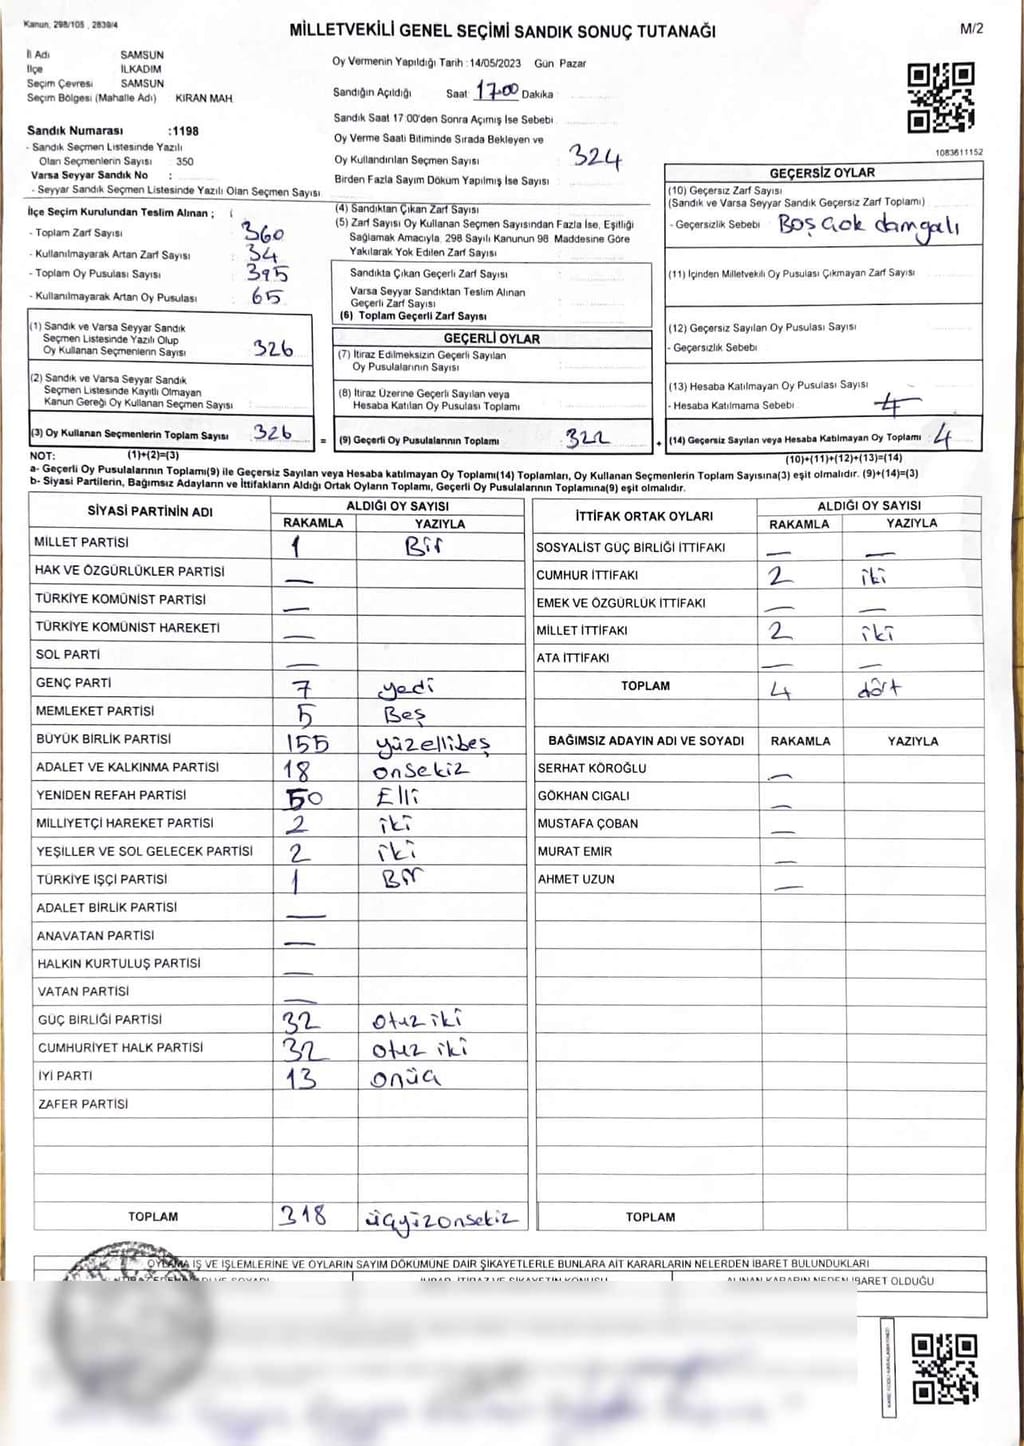 Kanun, 298/105 , 2839/4
MİLLETVEKİLİ GENEL SEÇİMİ SANDIK SONUÇ TUTANAĞI
M/2
İl Adı SAMSUN
İlçe İLKADIM
Seçim Çevresi SAMSUN
Seçim Bölgesi (Mahalle Adı) KIRAN MAH
Sandık Numarası :1198
- Sandık Seçmen Listesinde Yazılı
Olan Seçmenlerin Sayısı : 350
Varsa Seyyar Sandık No :
- Seyyar Sandık Seçmen Listesinde Yazılı Olan Seçmen Sayısı
Oy Vermenin Yapıldığı Tarih :14/05/2023 Gün Pazar
Sandığın Açıldığı Saat 17.00 Dakika
Sandık Saat 17 00'den Sonra Açımış İse Sebebi
Oy Verme Saati Bitiminde Sırada Bekleyen ve
Oy Kullandırılan Seçmen Sayısı 324
Birden Fazla Sayım Döküm Yapılmış İse Sayısı
1083611152
İlçe Seçim Kurulundan Teslim Alınan ; (
- Toplam Zarf Sayısı 360
- Kullanılmayarak Artan Zarf Sayısı : 34
- Toplam Oy Pusulası Sayısı 395
- Kullanılmayarak Artan Oy Pusulası : 65
(1) Sandık ve Varsa Seyyar Sandık
Seçmen Listesinde Yazılı Olup
Oy Kullanan Seçmenlerin Sayısı 326
(2) Sandık ve Varsa Seyyar Sandık
Seçmen Listesinde Kayıtlı Olmayan
Kanun Gereği Oy Kullanan Seçmen Sayısı
(3) Oy Kullanan Seçmenlerin Toplam Sayısı 326 =
(4) Sandıktan Çıkan Zarf Sayısı
(5) Zarf Sayısı Oy Kullanan Seçmen Sayısından Fazla İse, Eşitliği
Sağlamak Amacıyla, 298 Sayılı Kanunun 98 Maddesine Göre
Yakılarak Yok Edilen Zarf Sayısı
Sandıkta Çıkan Geçerli Zarf Sayısı
Varsa Seyyar Sandıktan Teslim Alınan
Geçerli Zarf Sayısı
(6) Toplam Geçerli Zarf Sayısı
GEÇERLİ OYLAR
(7) İtiraz Edilmeksizin Geçerli Sayılan
Oy Pusulalarının Sayısı
(8) İtiraz Üzerine Geçerli Sayılan veya
Hesaba Katılan Oy Pusulası Toplamı
(9) Geçerli Oy Pusulalarının Toplamı : 322 +
GEÇERSİZ OYLAR
(10) Geçersiz Zarf Sayısı
(Sandık ve Varsa Seyyar Sandık Geçersiz Zarf Toplamı)
- Geçersizlik Sebebi Boş çok damgalı
(11) İçinden Milletvekili Oy Pusulası Çıkmayan Zarf Sayısı
(12) Geçersiz Sayılan Oy Pusulası Sayısı
- Geçersizlik Sebebi
(13) Hesaba Katılmayan Oy Pusulası Sayısı
- Hesaba Katılmama Sebebi 4
(14) Geçersiz Sayılan veya Hesaba Katılmayan Oy Toplamı 4
NOT: (1)+(2)=(3) (10)+(11)+(12)+(13)=(14)
a- Geçerli Oy Pusulalarının Toplamı(9) ile Geçersiz Sayılan veya Hesaba katılmayan Oy Toplamı(14) Toplamları, Oy Kullanan Seçmenlerin Toplam Sayısına(3) eşit olmalıdır. (9)+(14)=(3)
b- Siyasi Partilerin, Bağımsız Adayların ve İttifakların Aldığı Ortak Oyların Toplamı, Geçerli Oy Pusulalarının Toplamına(9) eşit olmalıdır.
SİYASİ PARTİNİN ADI ALDIĞI OY SAYISI
RAKAMLA YAZIYLA
MİLLET PARTİSİ 1 Bir
HAK VE ÖZGÜRLÜKLER PARTİSİ —
TÜRKİYE KOMÜNİST PARTİSİ —
TÜRKİYE KOMÜNİST HAREKETİ —
SOL PARTİ —
GENÇ PARTİ 7 yedi
MEMLEKET PARTİSİ 5 Beş
BÜYÜK BİRLİK PARTİSİ 155 yüzellibeş
ADALET VE KALKINMA PARTİSİ 18 onsekiz
YENİDEN REFAH PARTİSİ 50 Elli
MİLLİYETÇİ HAREKET PARTİSİ 2 iki
YEŞİLLER VE SOL GELECEK PARTİSİ 2 iki
TÜRKİYE İŞÇİ PARTİSİ 1 Bir
ADALET BİRLİK PARTİSİ —
ANAVATAN PARTİSİ —
HALKIN KURTULUŞ PARTİSİ —
VATAN PARTİSİ —
GÜÇ BİRLİĞİ PARTİSİ 32 otuz iki
CUMHURİYET HALK PARTİSİ 32 otuz iki
İYİ PARTİ 13 onüç
ZAFER PARTİSİ
TOPLAM 318 üçyüzonsekiz
İTTİFAK ORTAK OYLARI ALDIĞI OY SAYISI
RAKAMLA YAZIYLA
SOSYALİST GÜÇ BİRLİĞİ İTTİFAKI — —
CUMHUR İTTİFAKI 2 iki
EMEK VE ÖZGÜRLÜK İTTİFAKI — —
MİLLET İTTİFAKI 2 iki
ATA İTTİFAKI — —
TOPLAM 4 dört
BAĞIMSIZ ADAYIN ADI VE SOYADI RAKAMLA YAZIYLA
SERHAT KÖROĞLU —
GÖKHAN CIGALI —
MUSTAFA ÇOBAN —
MURAT EMİR —
AHMET UZUN —
TOPLAM
OYLAMA İŞ VE İŞLEMLERİNE VE OYLARIN SAYIM DÖKÜMÜNE DAİR ŞİKAYETLERLE BUNLARA AİT KARARLARIN NELERDEN İBARET BULUNDUKLARI
ALINAN KARARIN NEDEN İBARET OLDUĞU